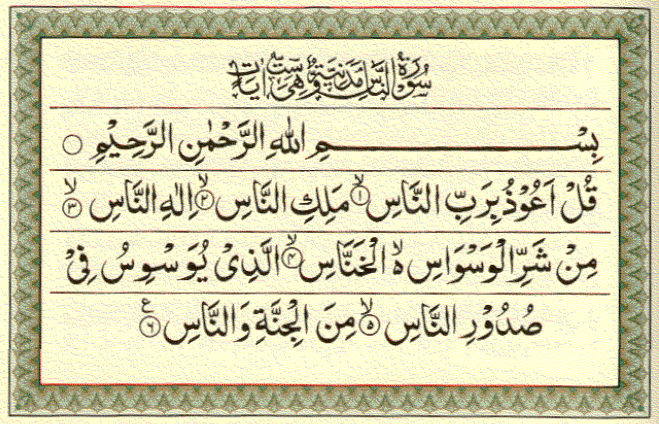 سُوْرَةُ النَّاسِ مَدَنِيَّةٌ وَّهِيَ سِتُّ اٰيَاتٍ
بِسْـــــــــــــــــمِ اللهِ الرَّحْمٰنِ الرَّحِيْمِ ○
قُلْ اَعُوْذُ بِرَبِّ النَّاسِ ۙ﴿۱﴾ مَلِكِ النَّاسِ ۙ﴿۲﴾ اِلٰهِ النَّاسِ ۙ﴿۳﴾
مِنْ شَرِّ الْوَسْوَاسِ ۵ۙ الْخَنَّاسِ ۙ﴿۴﴾ الَّذِیْ یُوَسْوِسُ فِیْ
صُدُوْرِ النَّاسِ ۙ﴿۵﴾ مِنَ الْجِنَّةِ وَالنَّاسِ ﴿۶﴾ ع